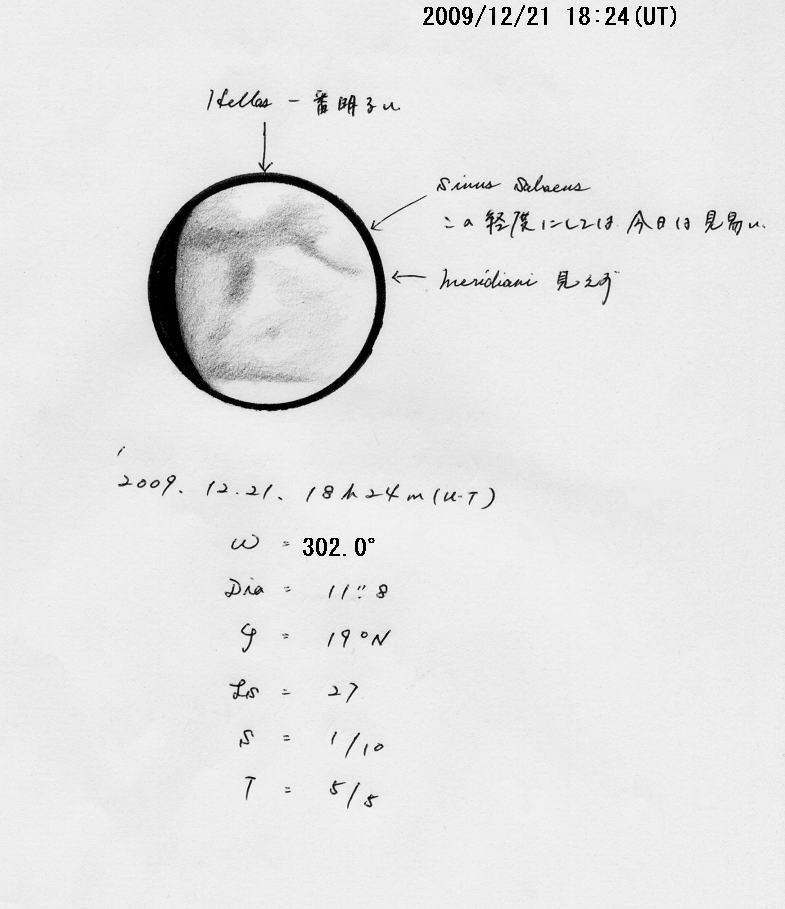 2009/12/21 18:24(UT)
Hellas 一番明るい
Sinus Sabaeus
この経度にしては、今日は見易い。
Meridiani 見えず
2009. 12.21. 18h24m(U.T)
ω = 302.0°
Dia = 11".8
φ = 19°N
Ls = 27
S = 1/10
T = 5/5